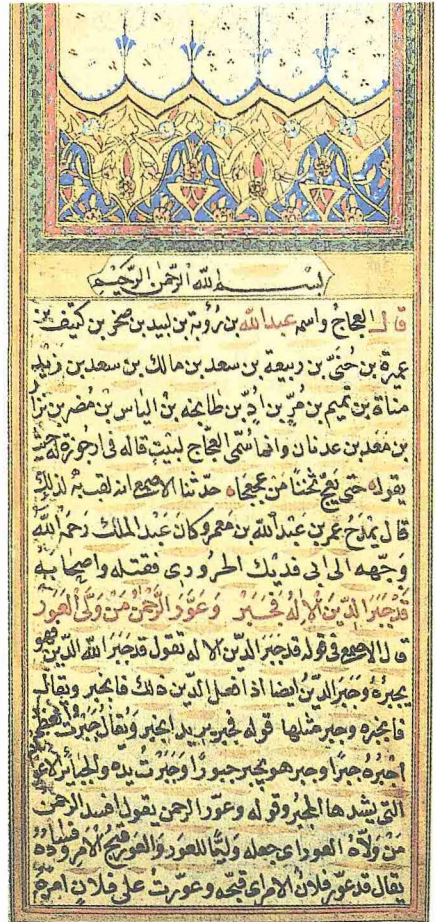 بسم الله الرحمن الرحيم
قال العجاج واسمه عبد الله بن رُؤبة بن لبيد بن صخر بن كتيف بن
عميرة بن حُنَيّ بن ربيعة بن سعد بن مالك بن سعد بن زيد
مناة بن تميم بن مُرّ بن ادّ بن طابخه بن الياس بن مُضر بن نزا
بن مَعَد بن عدنان وانما سُمّى العجّاج لبيتٍ قاله فى ارجوزة له
يقوله حتى يَعِجّ ثَخَنًا مَن عجعجا حدّثنا الاصمعى انه لقب به لذلك
قال يَمدَحُ عمر بن عَبد الله بن مَعمر وكانَ عَبد الملك رَحمه الله
وَجّهه الى ابى فديك الحَرُورى فقتله واصحابه
قَد جَبَرَ الدّينَ الاِلهُ فَجَبَر وَعَوَّرَ الرَّحمنُ مَن وَلَّى العَوَر
قال الاصمعى فى قوله قد جَبَرَ الدّين الاله تقول قد جَبَرَ الله الدّين فهو
يجبرُهُ وجَبَر الدّينُ ايضا اذا فعل الدّين ذلك فانجبر ويقال
فانجبره وجبر مثلها قوله فجبر يريد انجبر وَيُقال جَبَرتُ العظم
اجبُرهُ جَبرًا وجبر هو يجبر جبورًا وَجَبَرتُ يده والجبائر
التى يشدها المجبر وقوله وعوّر الرحمن يقول افسد الرحمن
مَن وَلّاهُ العوَر اى جعله وَليًّا للعور والعَور قبح الامر وفساده
يقال قد عَوّر فلانٌ الامر اى قبّحه وعوّرت على فلانٍ امرَهُ